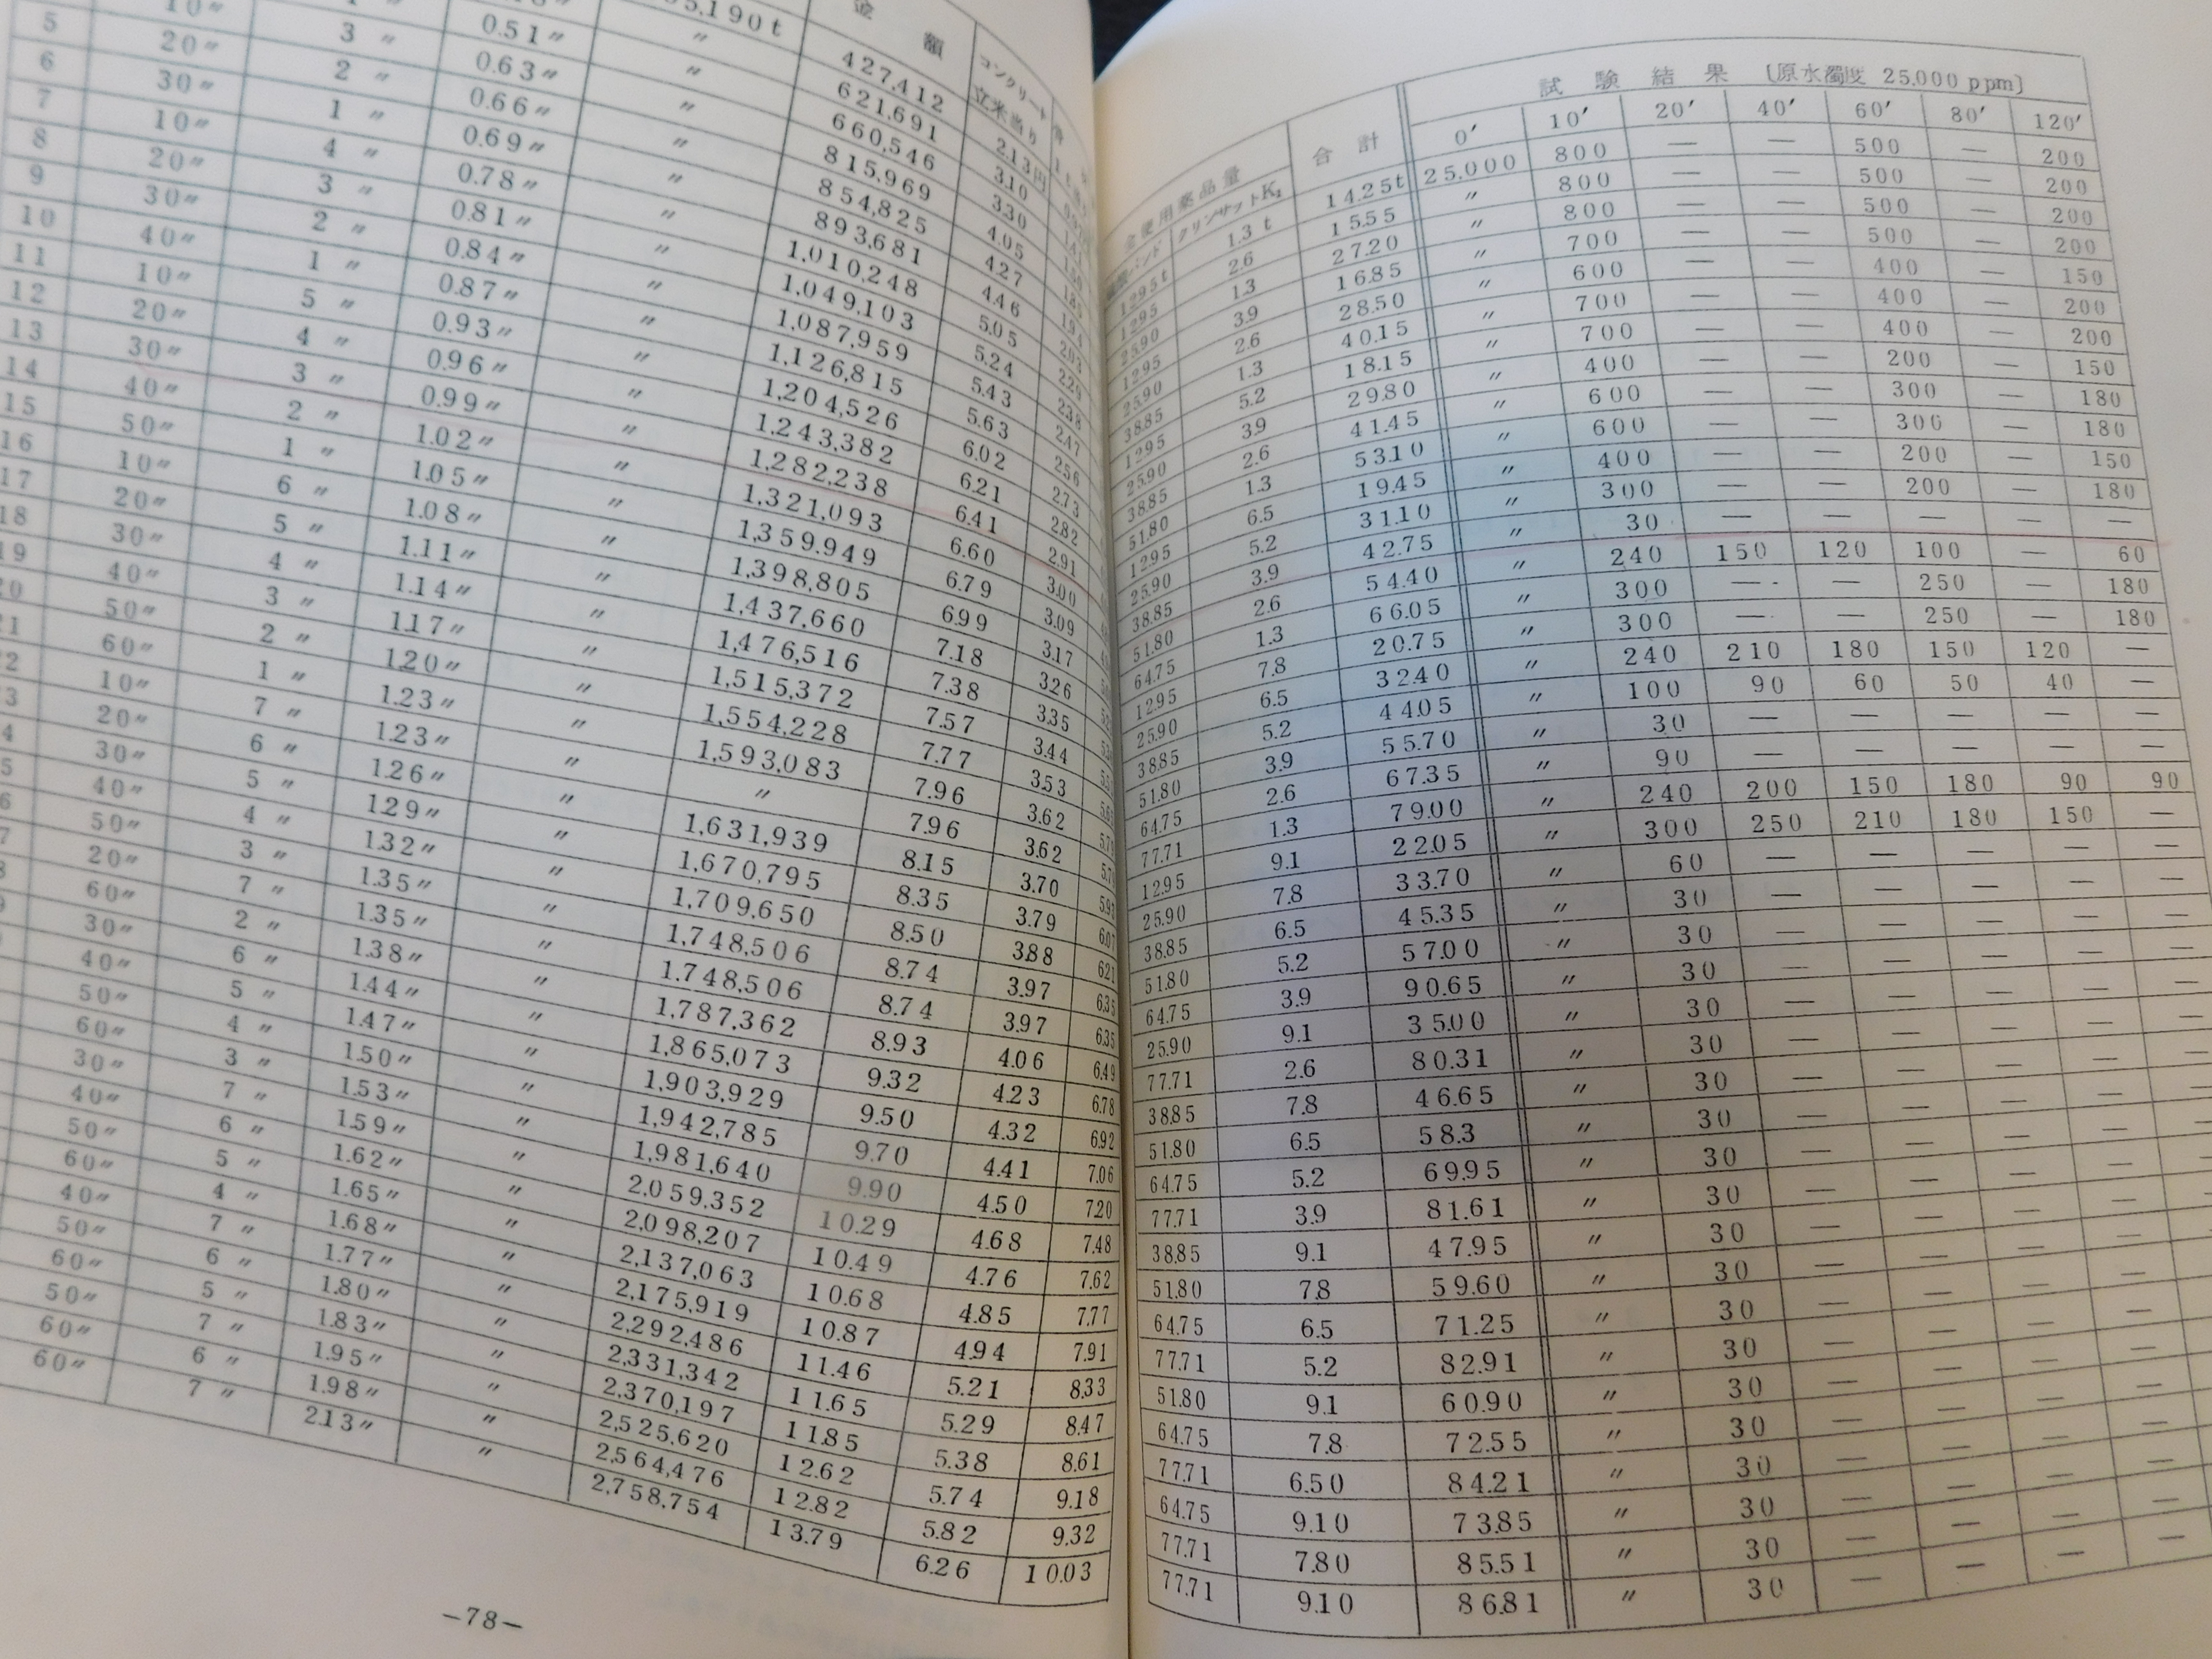 金額 コンクリート立米当り
55,190t 427,412 2.13円
〃 621,691 3.10
〃 660,546 3.30
10〃 3〃 0.63〃 〃 815,969 4.05 1.85
5 20〃 2〃 0.66〃 〃 854,825 4.27
6 30〃 1〃 0.69〃 〃 893,681 4.46 2.03
7 10〃 4〃 0.78〃 〃 1,010,248 5.05 2.29
8 20〃 3〃 0.81〃 〃 1,049,103 5.24 2.38
9 30〃 2〃 0.84〃 〃 1,087,959 5.43 2.47
10 40〃 1〃 0.87〃 〃 1,126,815 5.63 2.56
11 10〃 5〃 0.93〃 〃 1,204,526 6.02 2.73
12 20〃 4〃 0.96〃 〃 1,243,382 6.21 2.82
13 30〃 3〃 0.99〃 〃 1,282,238 6.41 2.91
14 40〃 2〃 1.02〃 〃 1,321,093 6.60 3.00
15 50〃 1〃 1.05〃 〃 1,359,949 6.79 3.09
16 10〃 6〃 1.08〃 〃 1,398,805 6.99 3.17
17 20〃 5〃 1.11〃 〃 1,437,660 7.18 3.26
18 30〃 4〃 1.14〃 〃 1,476,516 7.38 3.35
19 40〃 3〃 1.17〃 〃 1,515,372 7.57 3.44
50〃 2〃 1.20〃 〃 1,554,228 7.77 3.53
60〃 1〃 1.23〃 〃 1,593,083 7.96 3.62
10〃 7〃 1.23〃 〃 〃 7.96 3.62
20〃 6〃 1.26〃 〃 1,631,939 8.15 3.70 5.93
30〃 5〃 1.29〃 〃 1,670,795 8.35 3.79 6.07
40〃 4〃 1.32〃 〃 1,709,650 8.50 3.88 6.21
50〃 3〃 1.35〃 〃 1,748,506 8.74 3.97 6.35
20〃 7〃 1.35〃 〃 1,748,506 8.74 3.97 6.35
60〃 2〃 1.38〃 〃 1,787,362 8.93 4.06 6.49
30〃 6〃 1.44〃 〃 1,865,073 9.32 4.23 6.78
40〃 5〃 1.47〃 〃 1,903,929 9.50 4.32 6.92
50〃 4〃 1.50〃 〃 1,942,785 9.70 4.41 7.06
60〃 3〃 1.53〃 〃 1,981,640 9.90 4.50 7.20
30〃 7〃 1.59〃 〃 2,059,352 10.29 4.68 7.48
40〃 6〃 1.62〃 〃 2,098,207 10.49 4.76 7.62
50〃 5〃 1.65〃 〃 2,137,063 10.68 4.85 7.77
60〃 4〃 1.68〃 〃 2,175,919 10.87 4.94 7.91
40〃 7〃 1.77〃 〃 2,292,486 11.46 5.21 8.33
50〃 6〃 1.80〃 〃 2,331,342 11.65 5.29 8.47
60〃 5〃 1.83〃 〃 2,370,197 11.85 5.38 8.61
50〃 7〃 1.95〃 〃 2,525,620 12.62 5.74 9.18
60〃 6〃 1.98〃 〃 2,564,476 12.82 5.82 9.32
60〃 7〃 2.13〃 〃 2,758,754 13.79 6.26 10.03
－78－
全使用薬品量 合計 試験結果 〔原水濁度 25,000ppm〕
クリンサットK₂ 0′ 10′ 20′ 40′ 60′ 80′ 120′
12.95t 1.3t 14.25t 25,000 800 — — 500 — 200
12.95 2.6 15.55 〃 800 — — 500 — 200
25.90 1.3 27.20 〃 800 — — 500 — 200
12.95 3.9 16.85 〃 700 — — 500 — 200
25.90 2.6 28.50 〃 600 — — 400 — 150
38.85 1.3 40.15 〃 700 — — 400 — 200
12.95 5.2 18.15 〃 700 — — 400 — 200
25.90 3.9 29.80 〃 400 — — 200 — 150
38.85 2.6 41.45 〃 600 — — 300 — 180
51.80 1.3 53.10 〃 600 — — 300 — 180
12.95 6.5 19.45 〃 400 — — 200 — 150
25.90 5.2 31.10 〃 300 — — 200 — 180
38.85 3.9 42.75 〃 30 — — — — —
51.80 2.6 54.40 〃 240 150 120 100 — 60
64.75 1.3 66.05 〃 300 — — 250 — 180
12.95 7.8 20.75 〃 300 — — 250 — 180
25.90 6.5 32.40 〃 240 210 180 150 120 —
38.85 5.2 44.05 〃 100 90 60 50 40 —
51.80 3.9 55.70 〃 30 — — — — —
64.75 2.6 67.35 〃 90 — — — — —
77.71 1.3 79.00 〃 240 200 150 180 90 90
12.95 9.1 22.05 〃 300 250 210 180 150 —
25.90 7.8 33.70 〃 60 — — — — —
38.85 6.5 45.35 〃 30 — — — — —
51.80 5.2 57.00 〃 30 — — — — —
64.75 3.9 90.65 〃 30 — — — — —
25.90 9.1 35.00 〃 30 — — — — —
77.71 2.6 80.31 〃 30 — — — — —
38.85 7.8 46.65 〃 30 — — — — —
51.80 6.5 58.3 〃 30 — — — — —
64.75 5.2 69.95 〃 30 — — — — —
77.71 3.9 81.61 〃 30 — — — — —
38.85 9.1 47.95 〃 30 — — — — —
51.80 7.8 59.60 〃 30 — — — — —
64.75 6.5 71.25 〃 30 — — — — —
77.71 5.2 82.91 〃 30 — — — — —
51.80 9.1 60.90 〃 30 — — — — —
64.75 7.8 72.55 〃 30 — — — — —
77.71 6.50 84.21 〃 30 — — — — —
64.75 9.10 73.85 〃 30 — — — — —
77.71 7.80 85.51 〃 30 — — — —
77.71 9.10 86.81 〃 30 — — — —